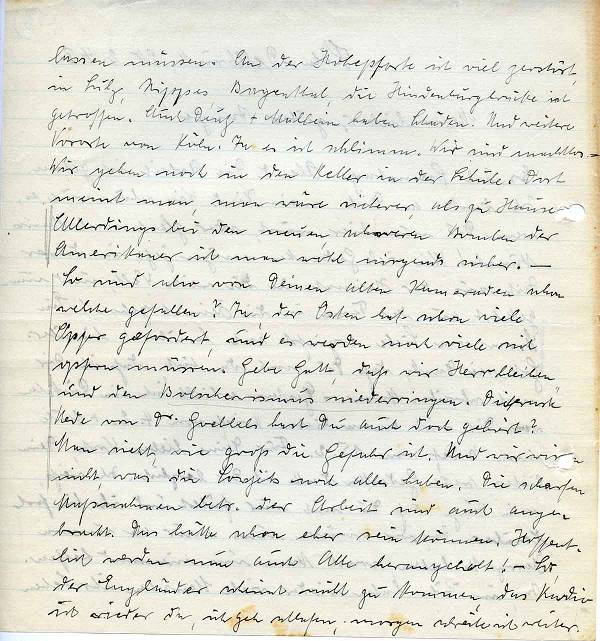 lassen müssen. An der Hohepforte ist viel zerstört,
in Sülz, Nippes, die Hindenburgbrücke ist
getroffen. Auch Deutz + Mülheim haben Schäden. Und weitere
Vororte von Köln. Ja es ist schlimm. Wir sind machtlos –
Wir gehen noch in den Keller in der Schule. Dort
meint man, man wäre sicherer, als zu Hause.
Allerdings bei den neuen, schweren Bomben der
Amerikaner ist man wohl nirgends sicher. –
So sind also von Deinen alten Kameraden schon
welche gefallen? Ja, der Osten hat schon viele
Opfer gefordert, und es werden noch viele sich
opfern müssen. Gebe Gott, daß wir Herr bleiben
und den Bolschewismus niederringen. Die
Rede von Dr. Goebbels hast Du auch doch gehört?
Man sieht, wie groß die Gefahr ist. Und wir wissen
nicht, was die Sowjets noch alles haben. Die scharfen
Maßnahmen betr. der Arbeit sind auch ange-
bracht. Das hätte schon eher sein können. Hoffent-
lich werden nun auch Alle herangeholt! – So
der Engländer scheint nicht zu kommen, das Radio
ist wieder da, ich geh schlafen, morgen schreibe ich weiter.